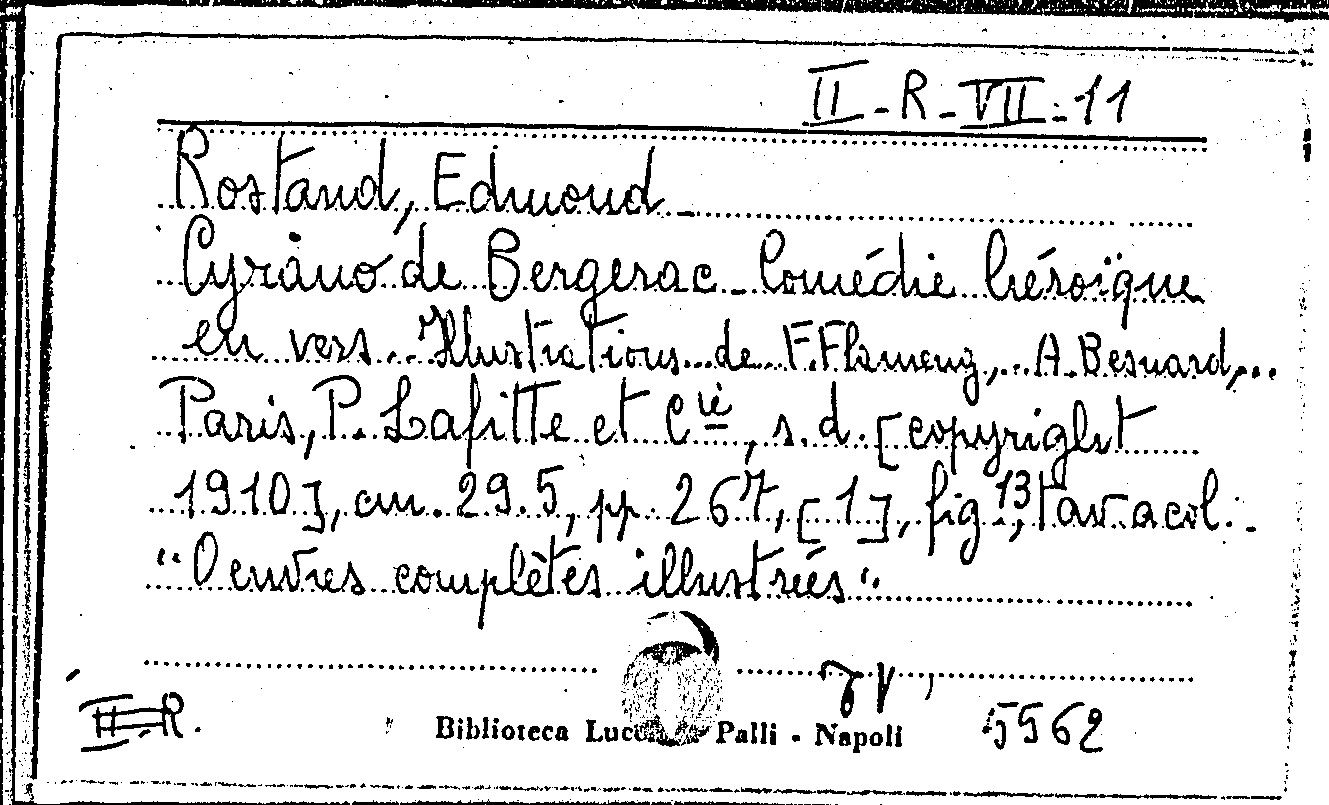 II-R-VII-11
Rostand, Edmond
Cyrano de Bergerac - Comédie héroïque
en vers. Illustrations de F. Flameng, A. Besnard,...
Paris, P. Lafitte et Cie, s.d. [copyright
1910], cm. 29.5, pp. 267, [1], fig., 13 tav. a col.-
"Oeuvres complètes illustrées".
II-R.
Biblioteca Palli - Napoli
5962